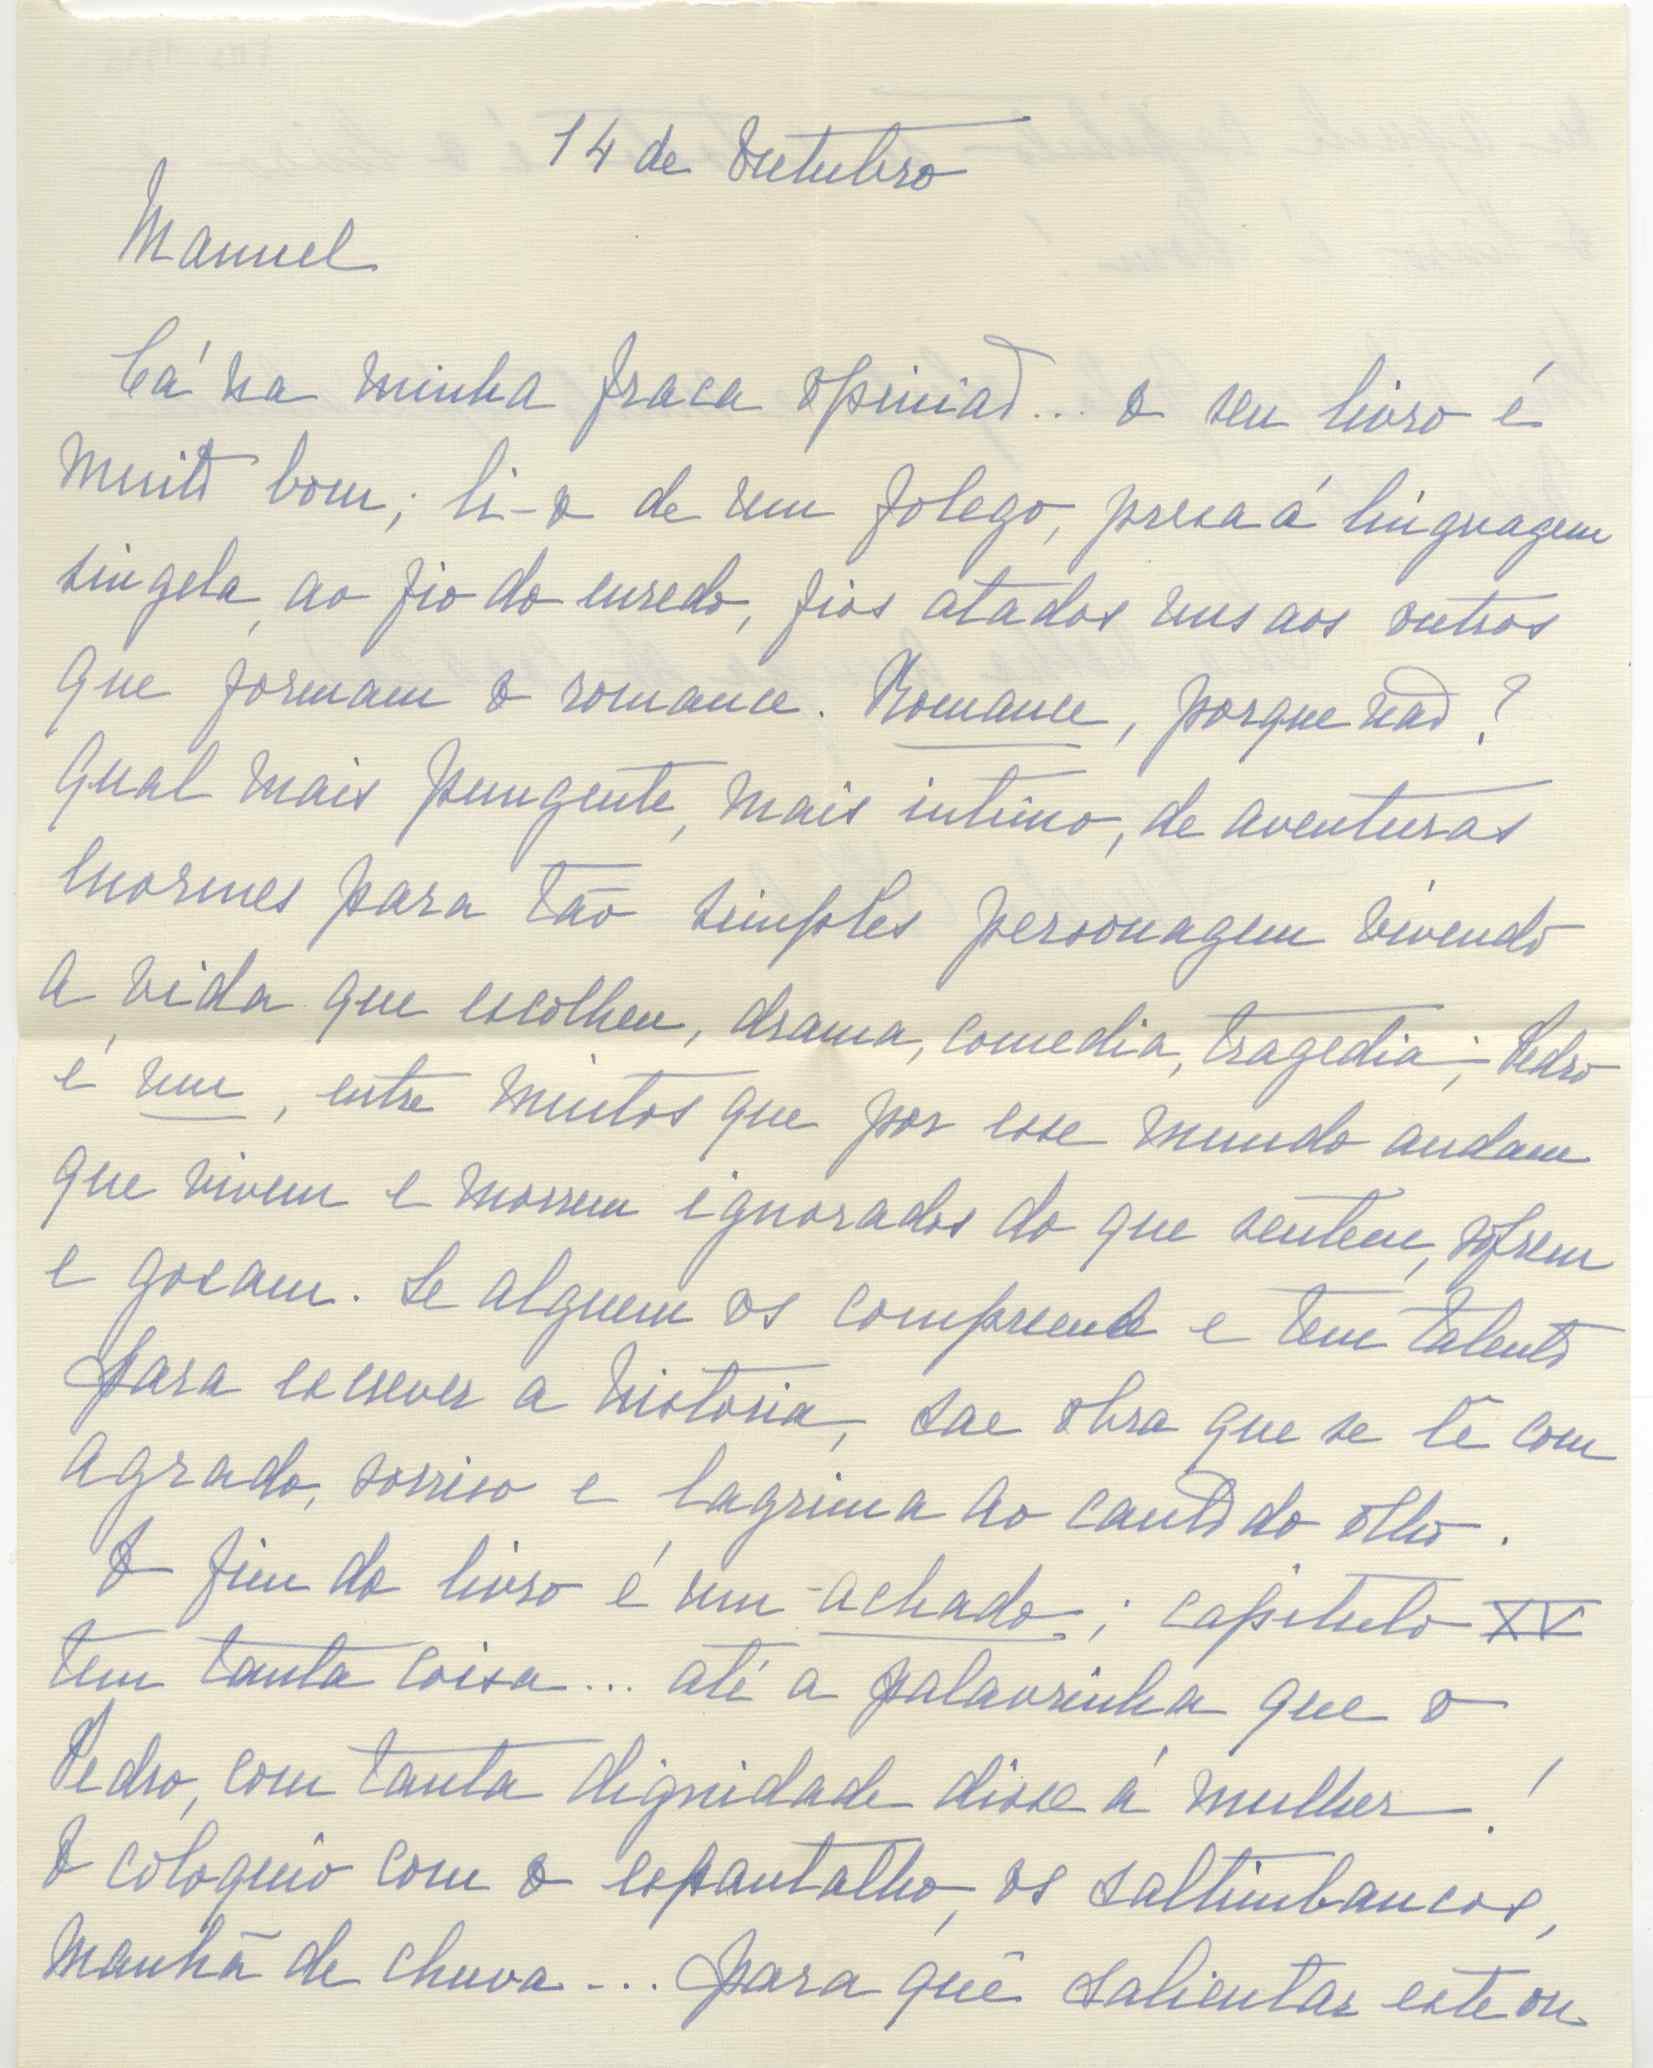 14 de Outubro
Manuel
Cá na minha fraca opinião... o seu livro é
muito bom; li-o de um folego, presa á linguagem
singela, ao fio do enredo, fios atados uns aos outros
que formam o romance. Romance, porque não?
Qual mais pungente, mais intimo, de aventuras
enormes para tão simples personagem vivendo
a vida que escolheu, drama, comedia, tragedia; Pedro
é um, entre muitos que por esse mundo andam
que vivem e morrem ignorados do que sentem, sofrem
e gosam. Se alguem os compreende e tem talento
para escrever a historia, sae obra que se lê com
agrado, sorriso e lagrima ao canto do olho.
O fim do livro é um achado; capitulo XV
tem tanta coisa... até a palavrinha que o
Pedro, com tanta dignidade disse á mulher!
O coloquio com o espantalho, os saltimbancos,
manhã de chuva... para quê salientar este ou